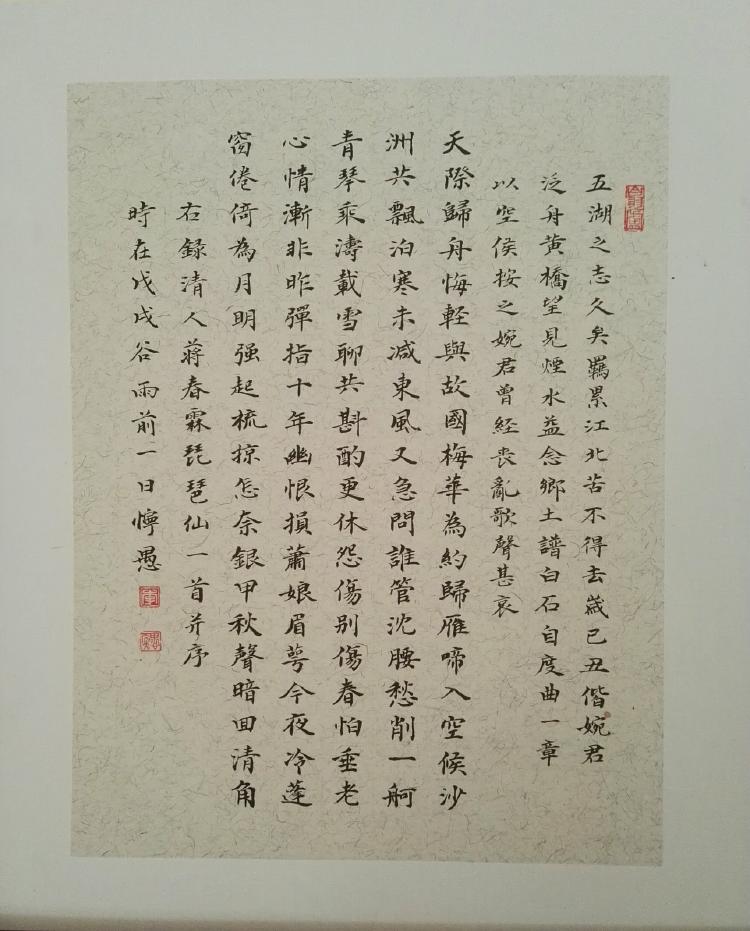 五湖之志久矣羈累江北苦不得去歲己丑偕婉君
泛舟黃橋望見煙水益念鄉土譜白石自度曲一章
以空侯按之婉君曾經喪亂歌聲甚哀
天際歸舟悔輕與故國梅華為約歸雁啼入空候沙
洲共飄泊寒未減東風又急問誰管沈腰愁削一舸
青琴乘濤載雪聊共斟酌更休怨傷别傷春怕垂老
心情漸非昨彈指十年幽恨損蕭娘眉萼今夜冷蓬
窗倦倚為月明强起梳掠怎奈銀甲秋聲暗回清角
右録清人蔣春霖琵琶仙一首并序
時在戊戌谷雨前一日懧愚